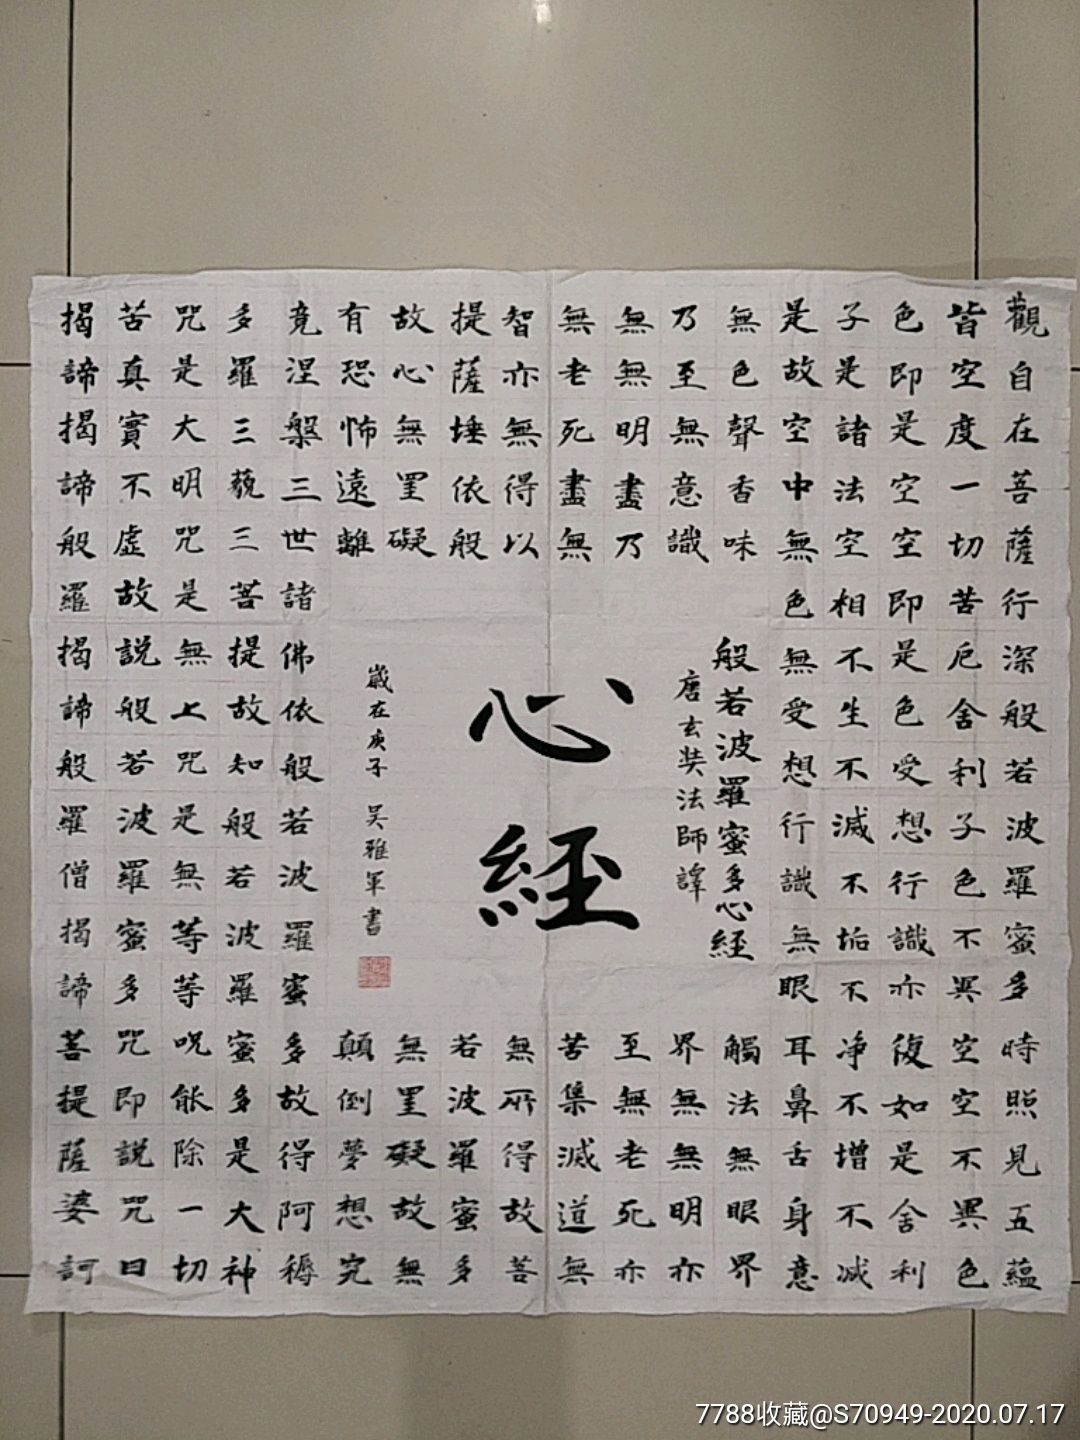 觀自在菩薩行深般若波羅蜜多時照見五蘊
皆空度一切苦厄舍利子色不異空空不異色
色即是空空即是色受想行識亦復如是舍利
子是諸法空相不生不滅不垢不净不增不减
是故空中無色無受想行識無眼耳鼻舌身意
無色聲香味
觸法無眼界
乃至無意識
界無無明亦
無無明盡乃
至無老死亦
無老死盡無
苦集滅道無
智亦無得以
無所得故菩
提薩埵依般
若波羅蜜多
故心無罣礙
無罣礙故無
有恐怖遠離
顛倒夢想究
竟涅槃三世諸佛依般若波羅蜜多故得阿耨
多羅三藐三菩提故知般若波羅蜜多是大神
咒是大明咒是無上咒是無等等呪能除一切
苦真實不虛故說般若波羅蜜多咒即說咒曰
揭諦揭諦般羅揭諦般羅僧揭諦菩提薩婆訶
般若波羅蜜多心經
唐玄奘法師譯
心經
歲在庚子 吴雅軍書
7788收藏@S70949-2020.07.17